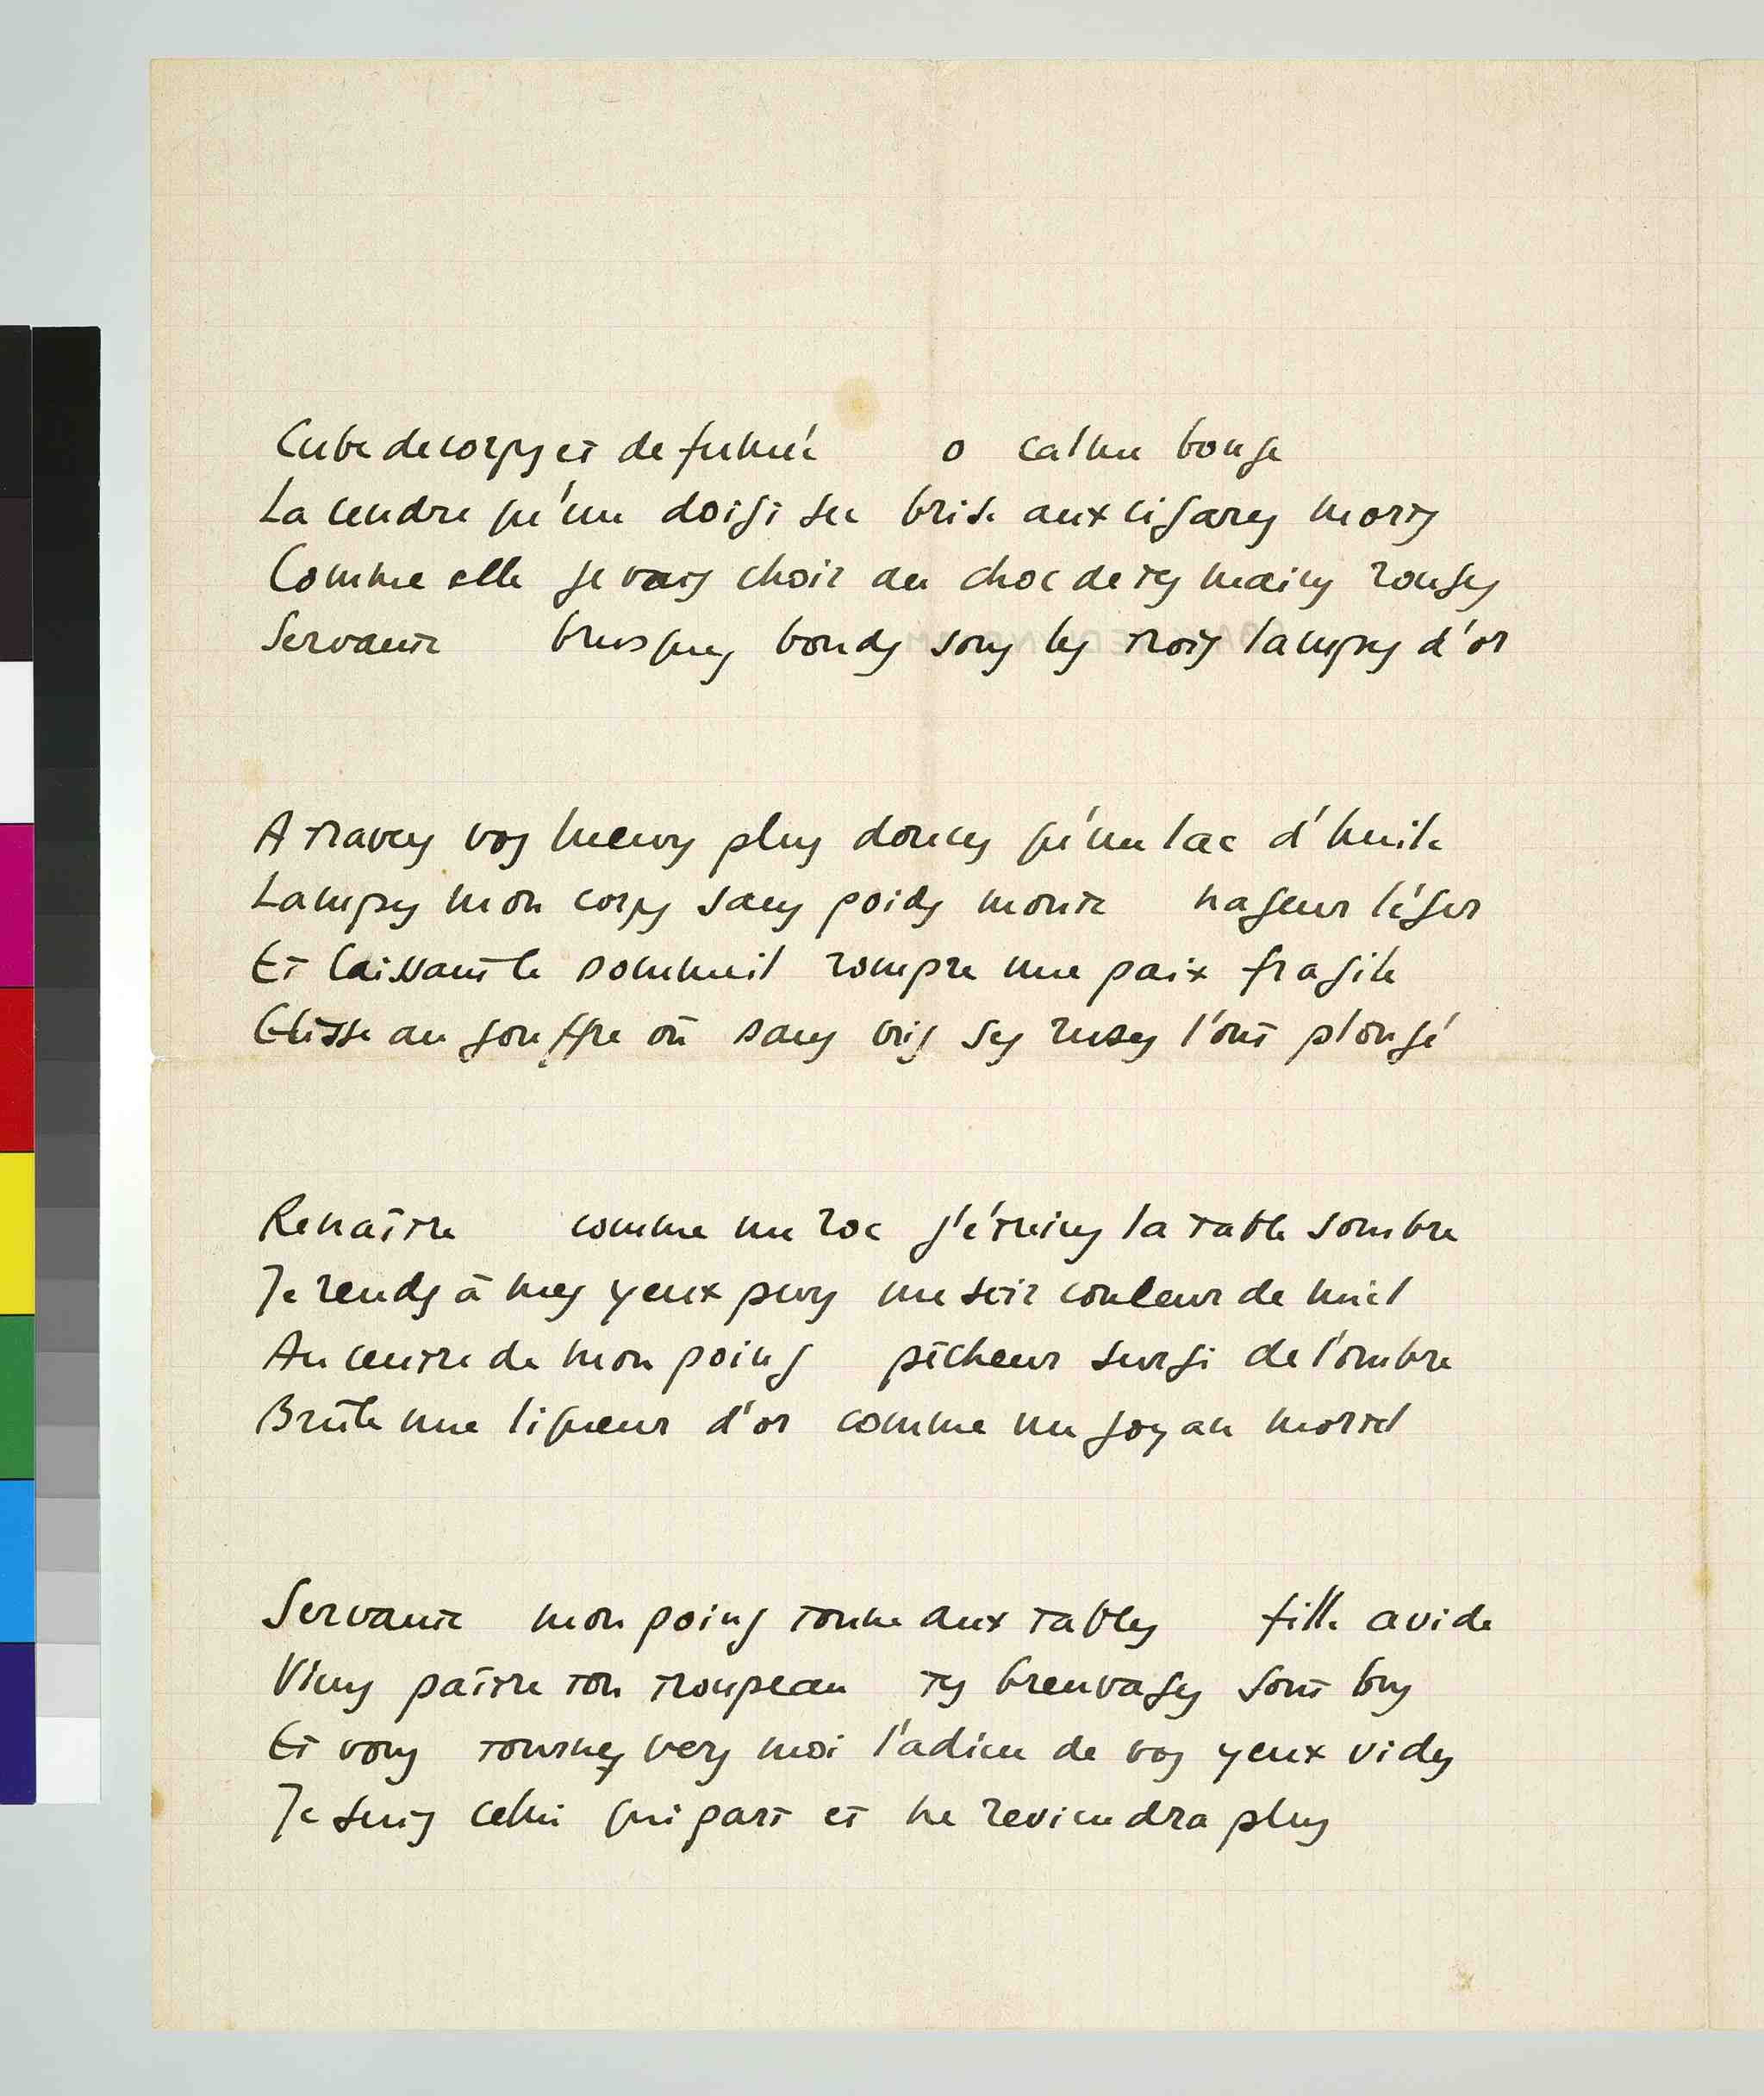 Cube de corps et de fumée o calme bouge
La cendre qu'un doigt sec brise aux cigares morts
Comme elle je vais choir au choc de tes mains rouges
Servante brusques bonds sous les trois lampes d'or
A travers vos lueurs plus douces qu'un lac d'huile
Lampes mon corps sans poids monte nageur léger
Et laissant le sommeil rompre une paix fragile
Glisse au gouffre où sans cris ses ruses l'ont plongé
Renaître comme un roc j'étreins la table sombre
Je rends à mes yeux purs un soir couleur de miel
Au centre de mon poing pêcheur surgi de l'ombre
Brûle une liqueur d'or comme un joyau mortel
Servante mon poing tonne aux tables fille avide
Viens paître ton troupeau tes breuvages sont bus
Et vous tournez vers moi l'adieu de vos yeux vides
Je suis celui qui part et ne reviendra plus